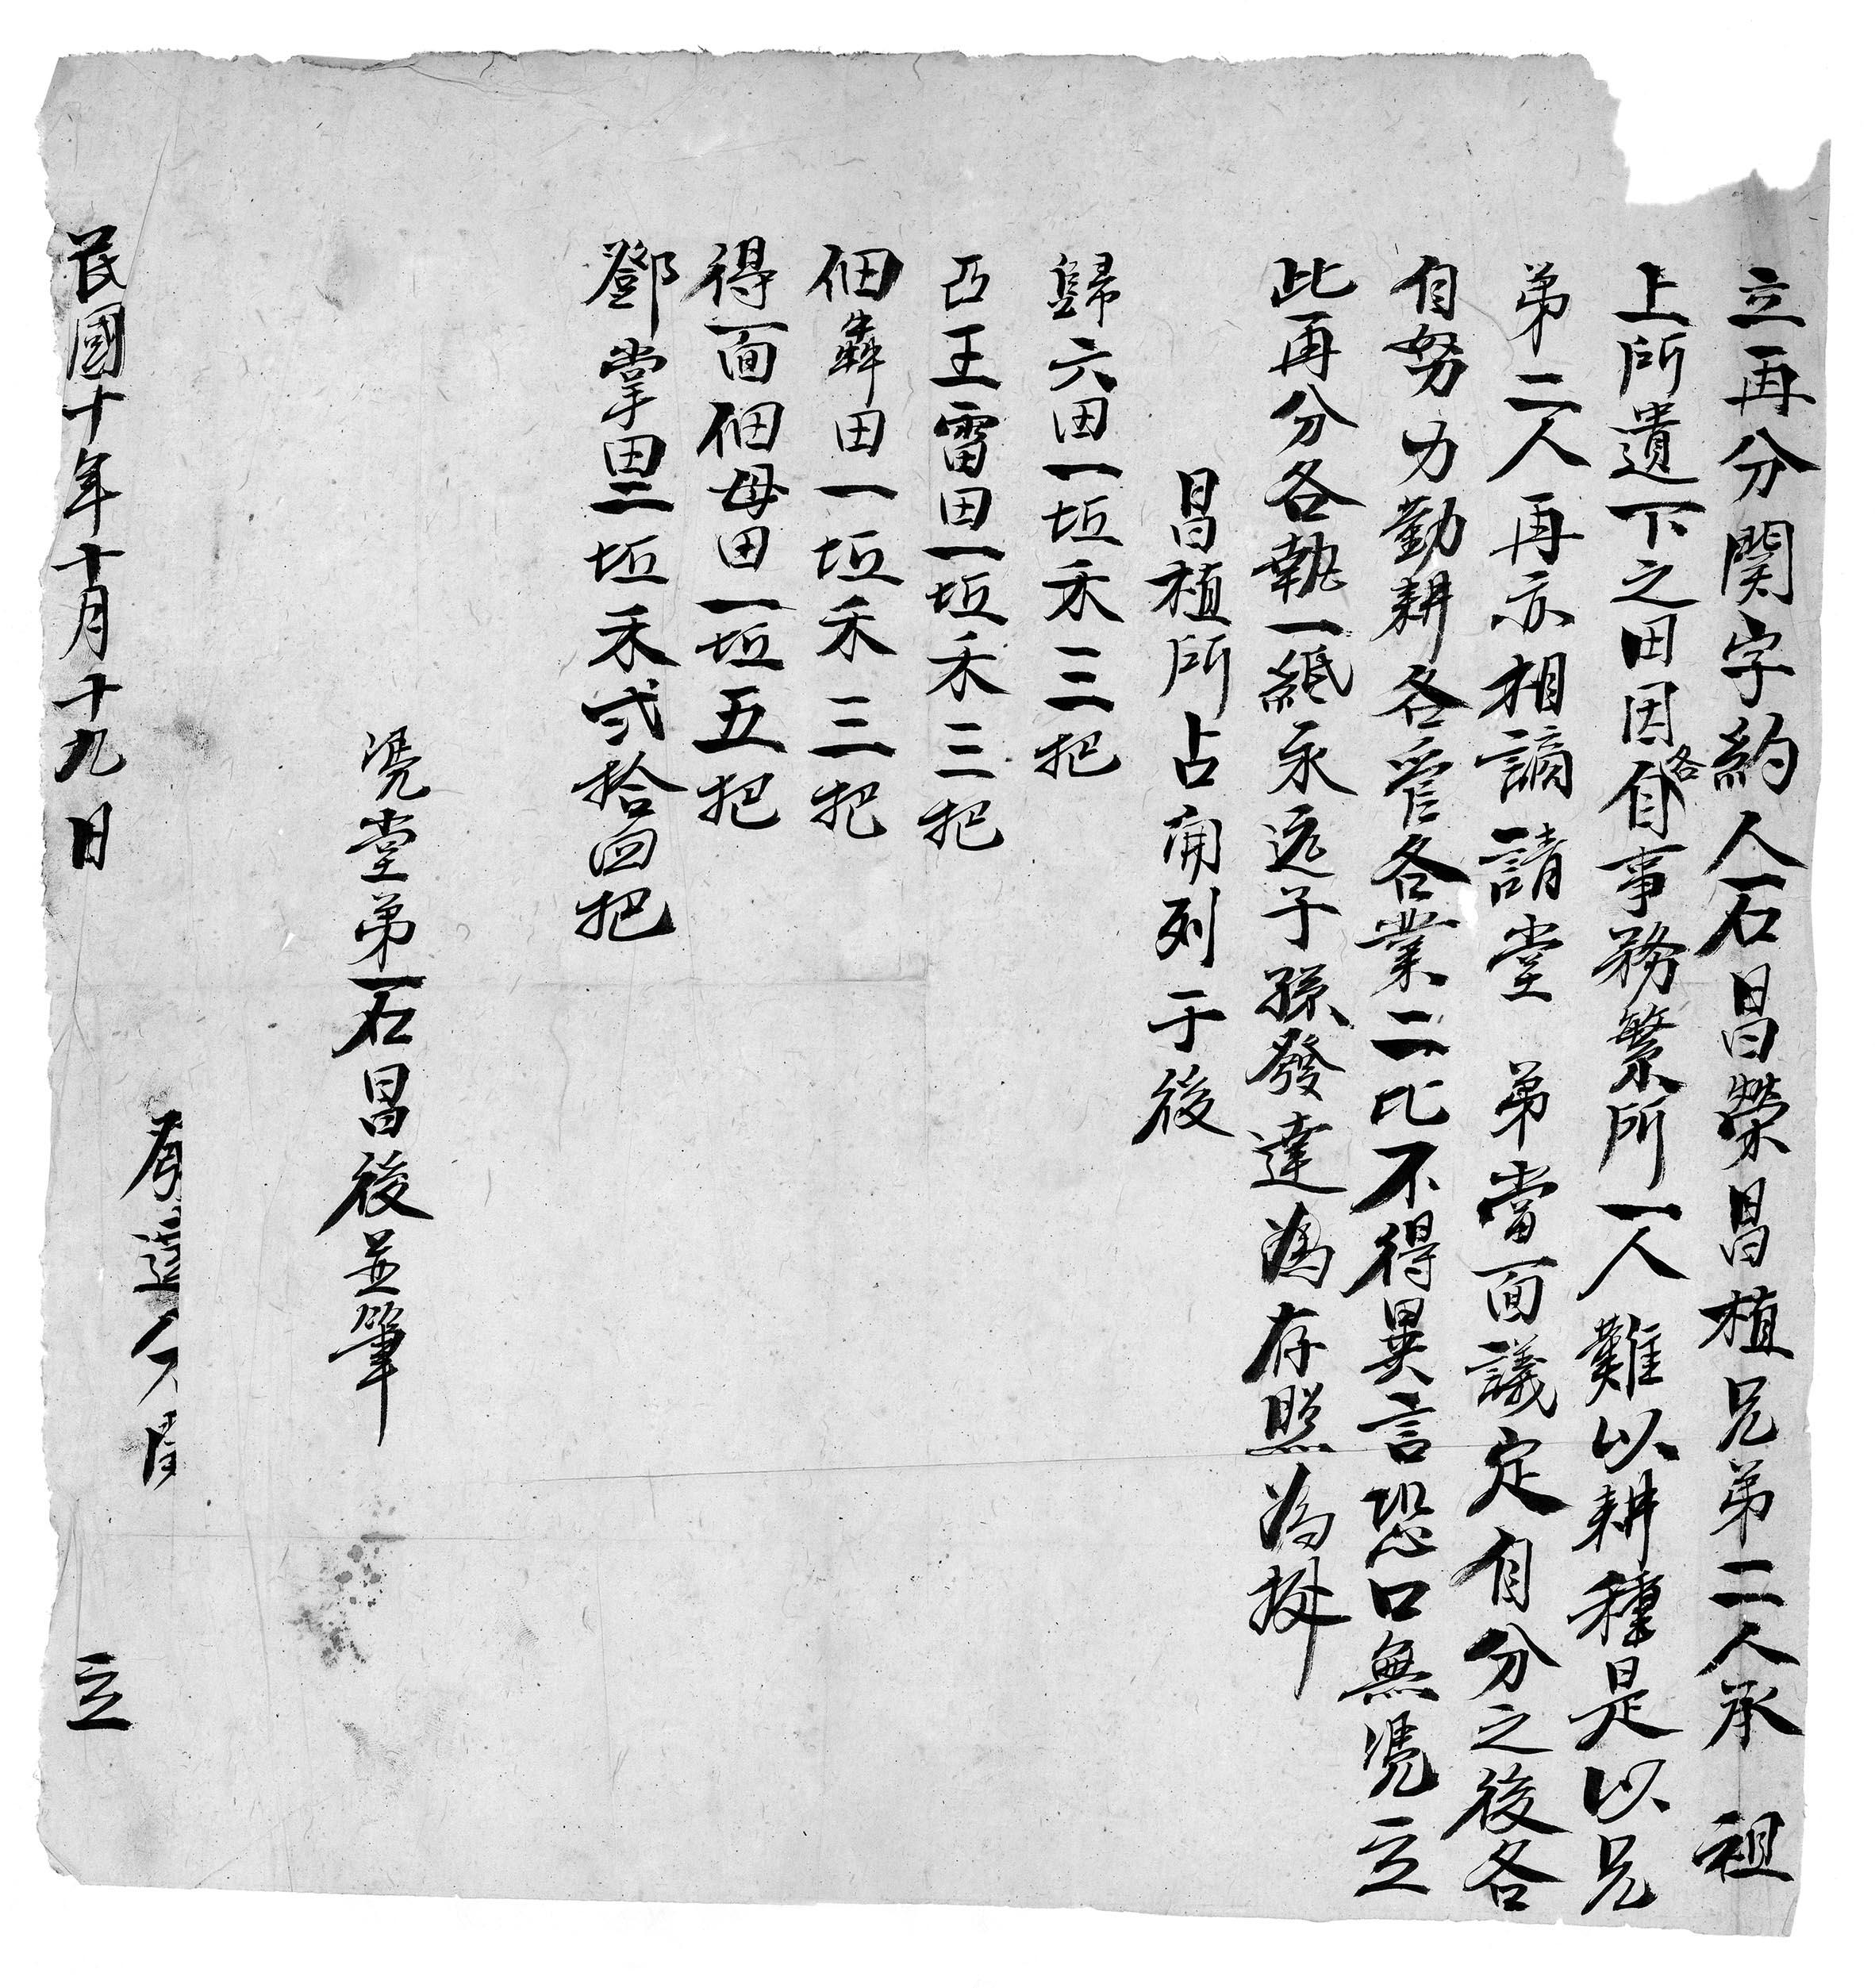 立再分関字約人石昌榮昌植兄弟二人承 祖
上所遺下之田因各自事務繁所一人難以耕種是以兄
弟二人再亦相謫請堂 弟當面議定自分之後各
自努力勤耕各管各業二比不得異言恐口無凴立
此再分各執一紙永远子孫發達為存照為㨿
昌植所占開列于後
歸六田一坵禾三把
亞王雷田一坵禾三把
佃犇田一坵禾三把
得面佃母田一坵五把
鄧掌田二坵禾弍拾四把
凴堂弟石昌後並筆
民國十年十月十九日 立